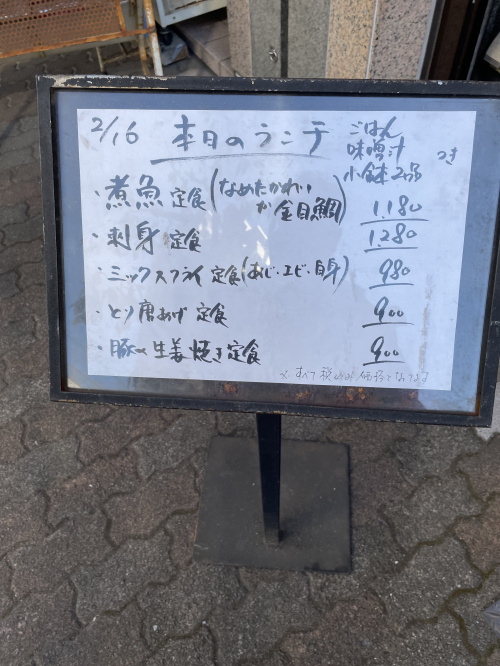 2/16 本日のランチ
ごはん
味噌汁
小鉢2品
つき
・煮魚定食(なめたかれいか金目鯛) 1180
・刺身定食 1280
・ミックスフライ定食(あじ・エビ・白身) 980
・とり唐あげ定食 900
・豚の生姜焼き定食 900
※すべて税込み価格となってます